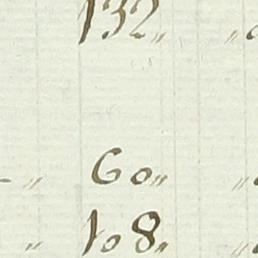 132 „ „
„ 60 „ „
„ 108 „ „